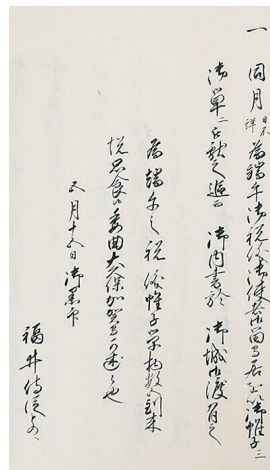 一 同月日不詳為端午御祝儀御使者以御帷子三
御単二被献之追而 御内書於 御城御渡有之
為端午之祝儀帷子単物数到来
悦思食候委曲大久保加賀守可述也
五月十日御黒印
福井侍従との